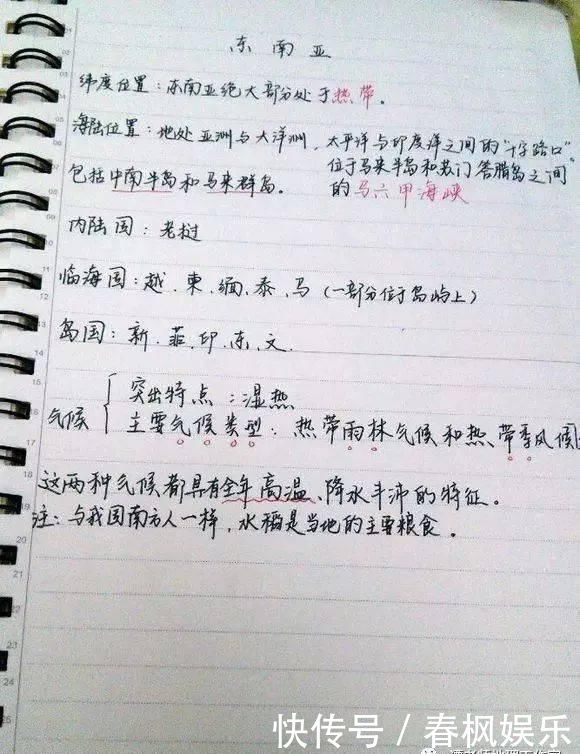 东南亚
纬度位置：东南亚绝大部分处于热带。
海陆位置：地处亚洲与大洋洲，太平洋与印度洋之间的"十字路口"
位于马来半岛和苏门答腊岛之间
的马六甲海峡
包括中南半岛和马来群岛。
内陆国：老挝
临海国：越、柬、缅、泰、马（一部分位于岛屿上）
岛国：新、菲、印、东、文
气候
突出特点：湿热
主要气候类型：热带雨林气候和热带季风候
这两种气候都具有全年高温、降水丰沛的特征。
注：与我国南方人一样，水稻是当地的主要粮食。
快传号 / 春枫娱乐